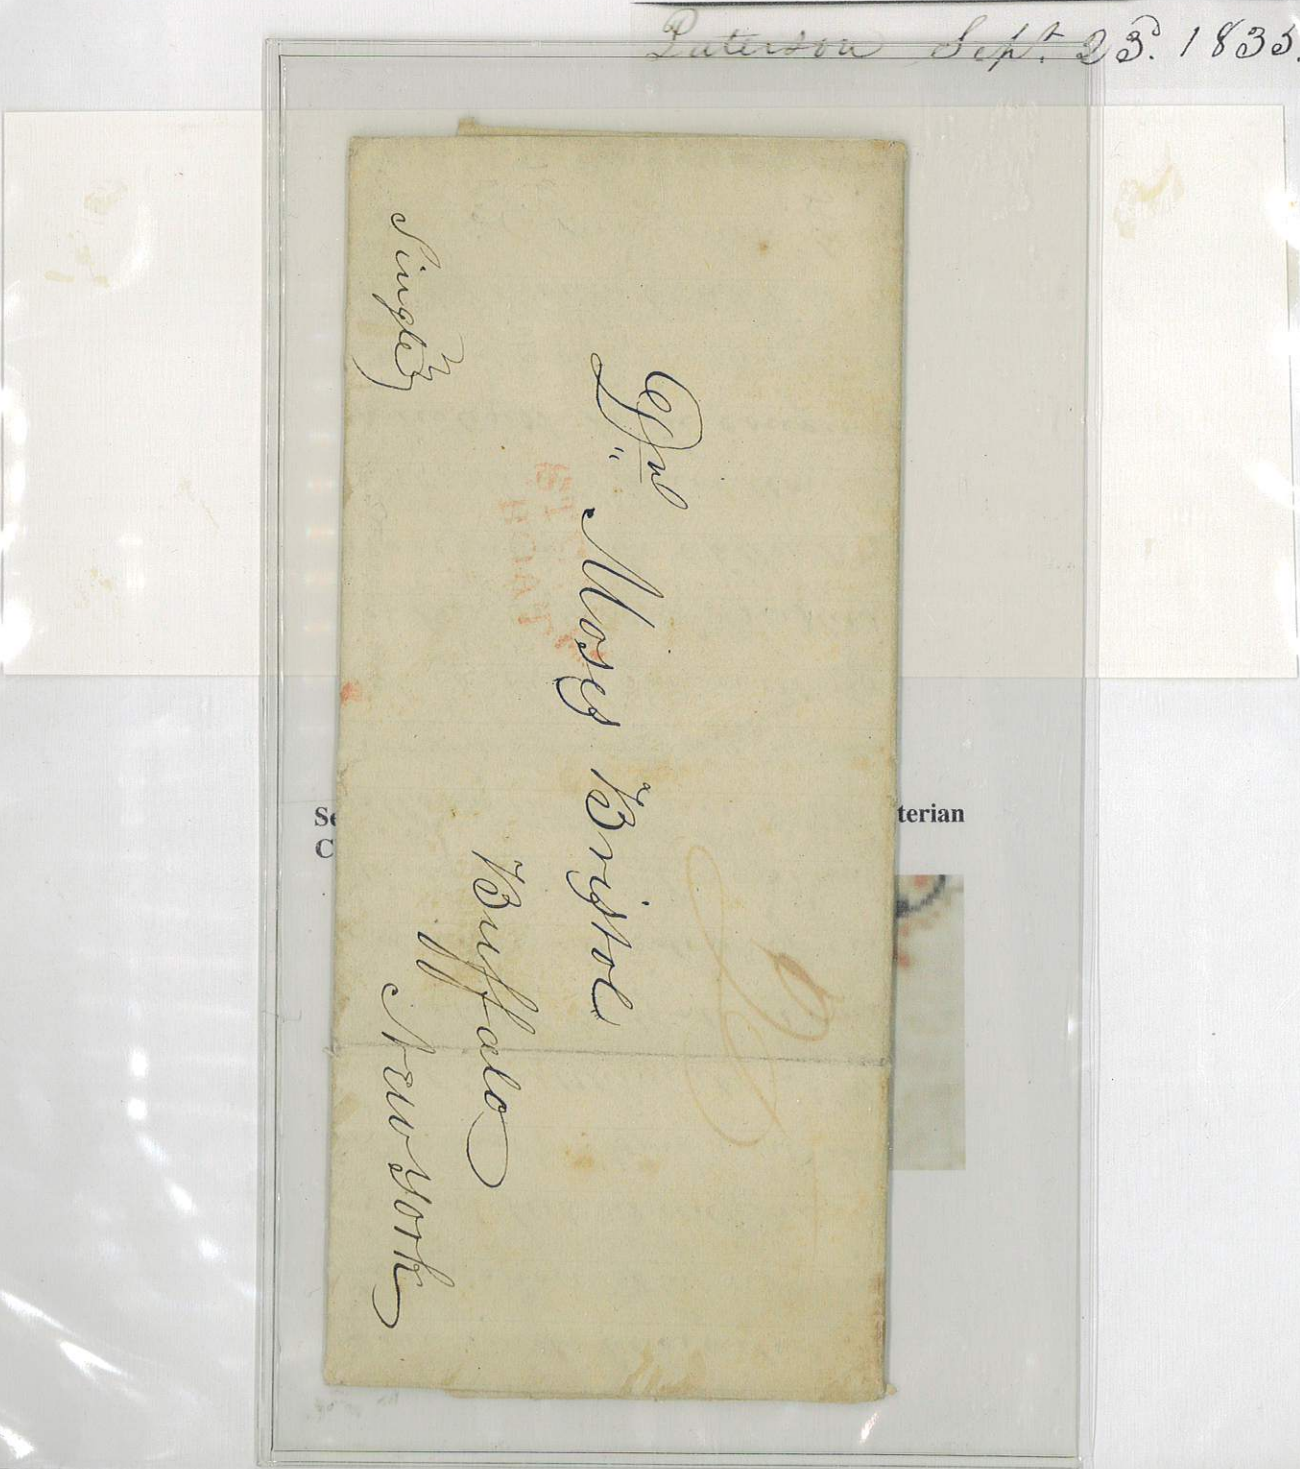 Paterson Sept. 23d. 1835.
Single
Dr. Moses Bristol
Buffalo
New York
STEAM
BOAT
terian
C